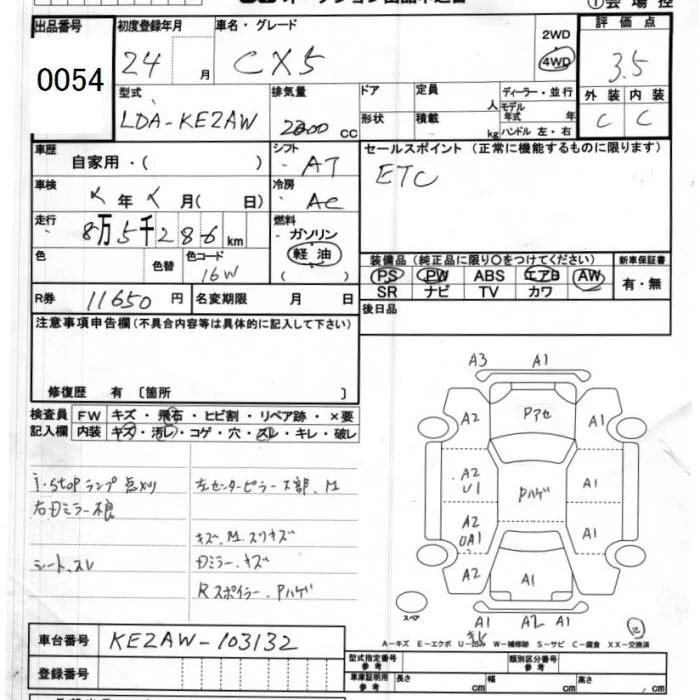 オークション出品申込書 ①会場控
出品番号 初度登録年月 車名・グレード 2WD 4WD 評価点
0054 24 月 CX5 3.5
型式 排気量 ドア 定員 人 ディーラー・並行 外装 内装
LDA-KE2AW 2200 cc 形状 積載 kg モデル年式 年式 ハンドル 左・右 C C
車歴 自家用・( ) シフト AT セールスポイント (正常に機能するものに限ります)
車検 年 月( 日) 冷房 AC ETC
走行 8万5千286km 燃料 ガソリン 軽油
色 色替 色コード 16W 装備品 (純正品に限り○をつけてください) 新車保証書
PS PW ABS エアB AW 有・無
R券 11650 円 名変期限 月 日 SR ナビ TV カワ
注意事項申告欄 (不具合内容等は具体的に記入して下さい) 後日品
修復歴 有 〔箇所 〕
検査員 FW キズ・飛石・ヒビ割・リペア跡・×要
記入欄 内装 キズ・汚レ・コゲ・穴・スレ・キレ・破レ
A3 A1
A2 Pアセ A1
i-stopランプ 点刈 左センターピラー下部、M
A2 U1 Pハゲ A1
右Dミラー不良
キズ、M、スリキズ
A2 UA1 A1
シート、スレ Dミラー、キズ
A2 A1 A1
Rスポイラー、Pハゲ
スペア A1 キレ A2 A1
A-キズ E-エクボ U-凹み W-補修跡 S-サビ C-腐食 XX-交換済
車台番号 KE2AW-103132
登録番号 型式指定番号 参考 類別区分番号 参考
車庫証明用 参考 長さ cm 幅 cm 高さ cm